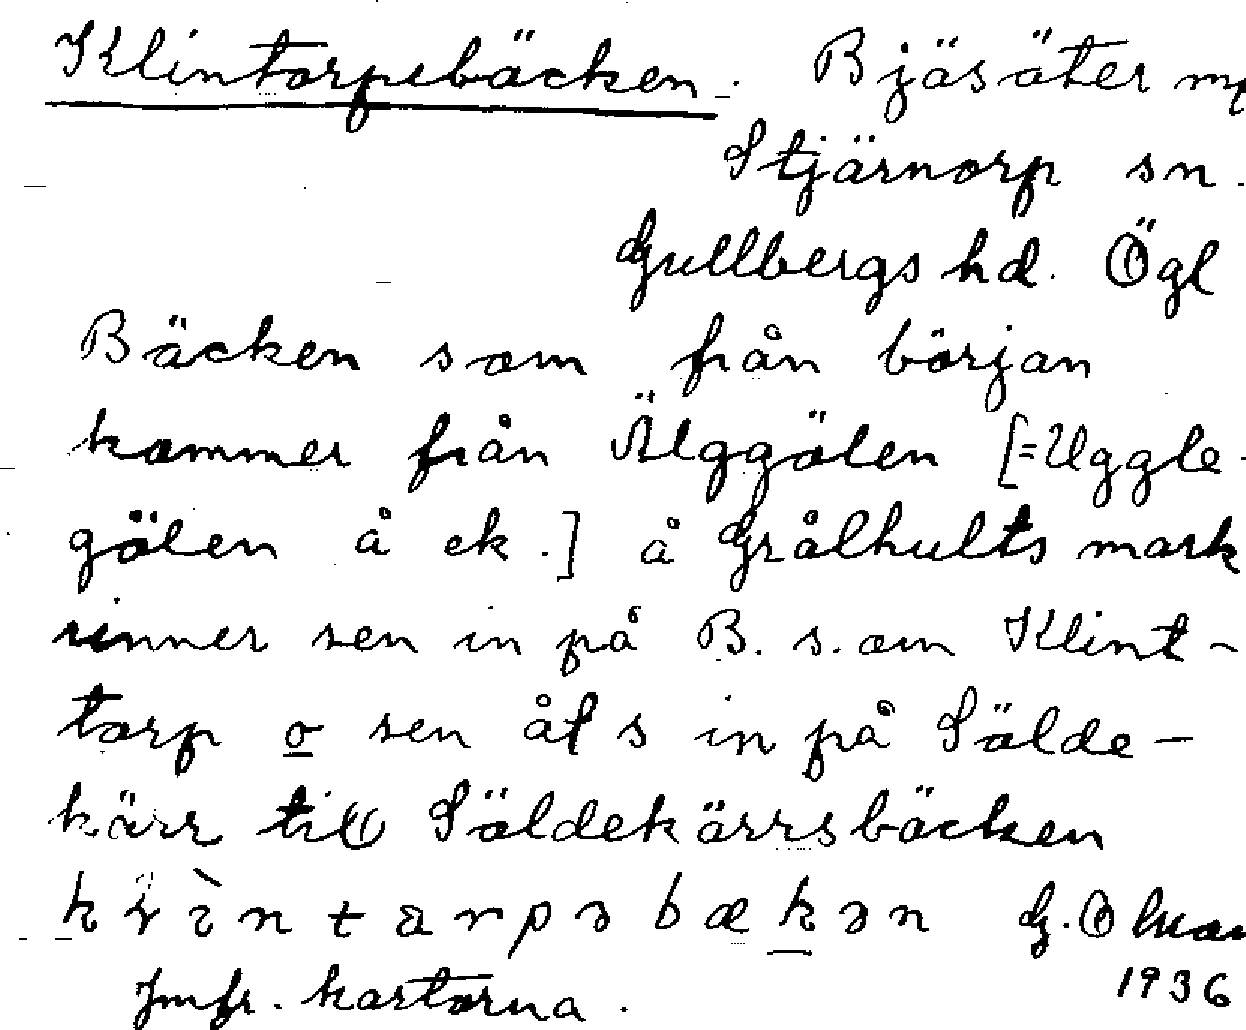 Klintorpebäcken. Bjäsäter
Stjärnorp sn.
Gullbergs hd. Ögl
Bäcken som från början
kommer från Älggölen [=Uggle-
gölen å ek.] å Grålhults mark
rinner sen in på B. s. om Klint-
torp o sen åt s in på Sölde-
kärr till Söldekärrsbäcken
G. O
Jmfr. kartorna.
1936